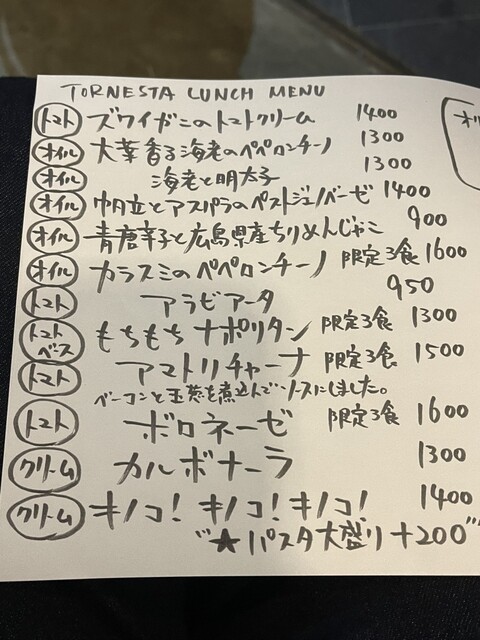 TORNESTA LUNCH MENU
トマト ズワイガニのトマトクリーム 1400
オイル 大葉香る海老のペペロンチーノ 1300
オイル 海老と明太子 1300
オイル 帆立とアスパラのペストジェノバーゼ 1400
オイル 青唐辛子と広島県産ちりめんじゃこ 900
オイル カラスミのペペロンチーノ 限定3食 1600
トマト アラビアータ 950
トマトベース もちもちナポリタン 限定3食 1300
トマト アマトリチャーナ 限定3食 1500
ベーコンと玉葱を煮込んでソースにしました。
トマト ボロネーゼ 限定3食 1600
クリーム カルボナーラ 1300
クリーム キノコ!キノコ!キノコ! 1400
"★パスタ大盛り+200"